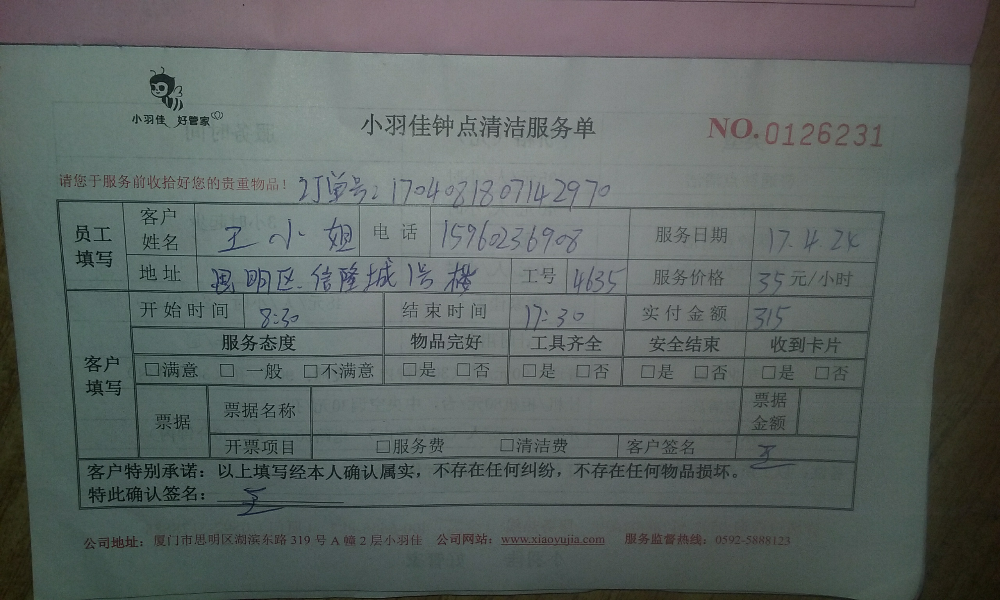 小羽佳 好管家
小羽佳钟点清洁服务单
NO.0126231
请您于服务前收拾好您的贵重物品！ 订单号：1704081807142970
员工填写 客户姓名 王小姐 电话 15960236908 服务日期 17.4.24
地址 思明区.信隆城1号楼 工号 4635 服务价格 35元/小时
客户填写 开始时间 8:30 结束时间 17:30 实付金额 315
服务态度 物品完好 工具齐全 安全结束 收到卡片
□满意 □一般 □不满意 □是 □否 □是 □否 □是 □否 □是 □否
票据 票据名称 票据金额
开票项目 □服务费 □清洁费 客户签名 王
客户特别承诺：以上填写经本人确认属实，不存在任何纠纷，不存在任何物品损坏。
特此确认签名：王
公司地址：厦门市思明区湖滨东路319号A幢2层小羽佳 公司网站：www.xiaoyujia.com 服务监督热线：0592-5888123